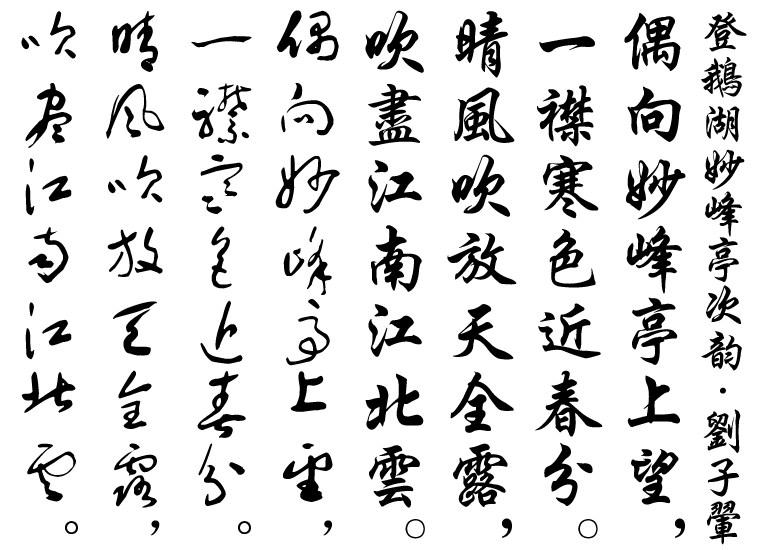 登鵝湖妙峰亭次韵·劉子翬
偶向妙峰亭上望，
一襟寒色近春分。
晴風吹放天全露，
吹盡江南江北雲。
偶向妙峰亭上望，
一襟寒色近春分。
晴風吹放天全露，
吹盡江南江北雲。